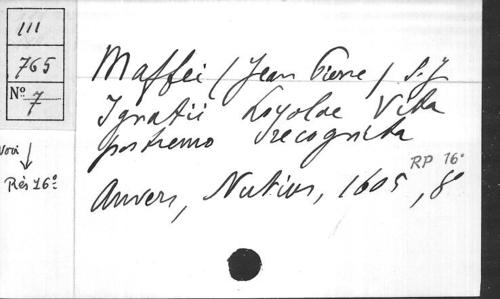 III
765
No 7
voir
↓
Rés 16o
Maffei (Jean Pierre) S.J
Ignatii Loyolae Vita
postremo recognita
RP 16o
Anvers, Nutius, 1605, 8o